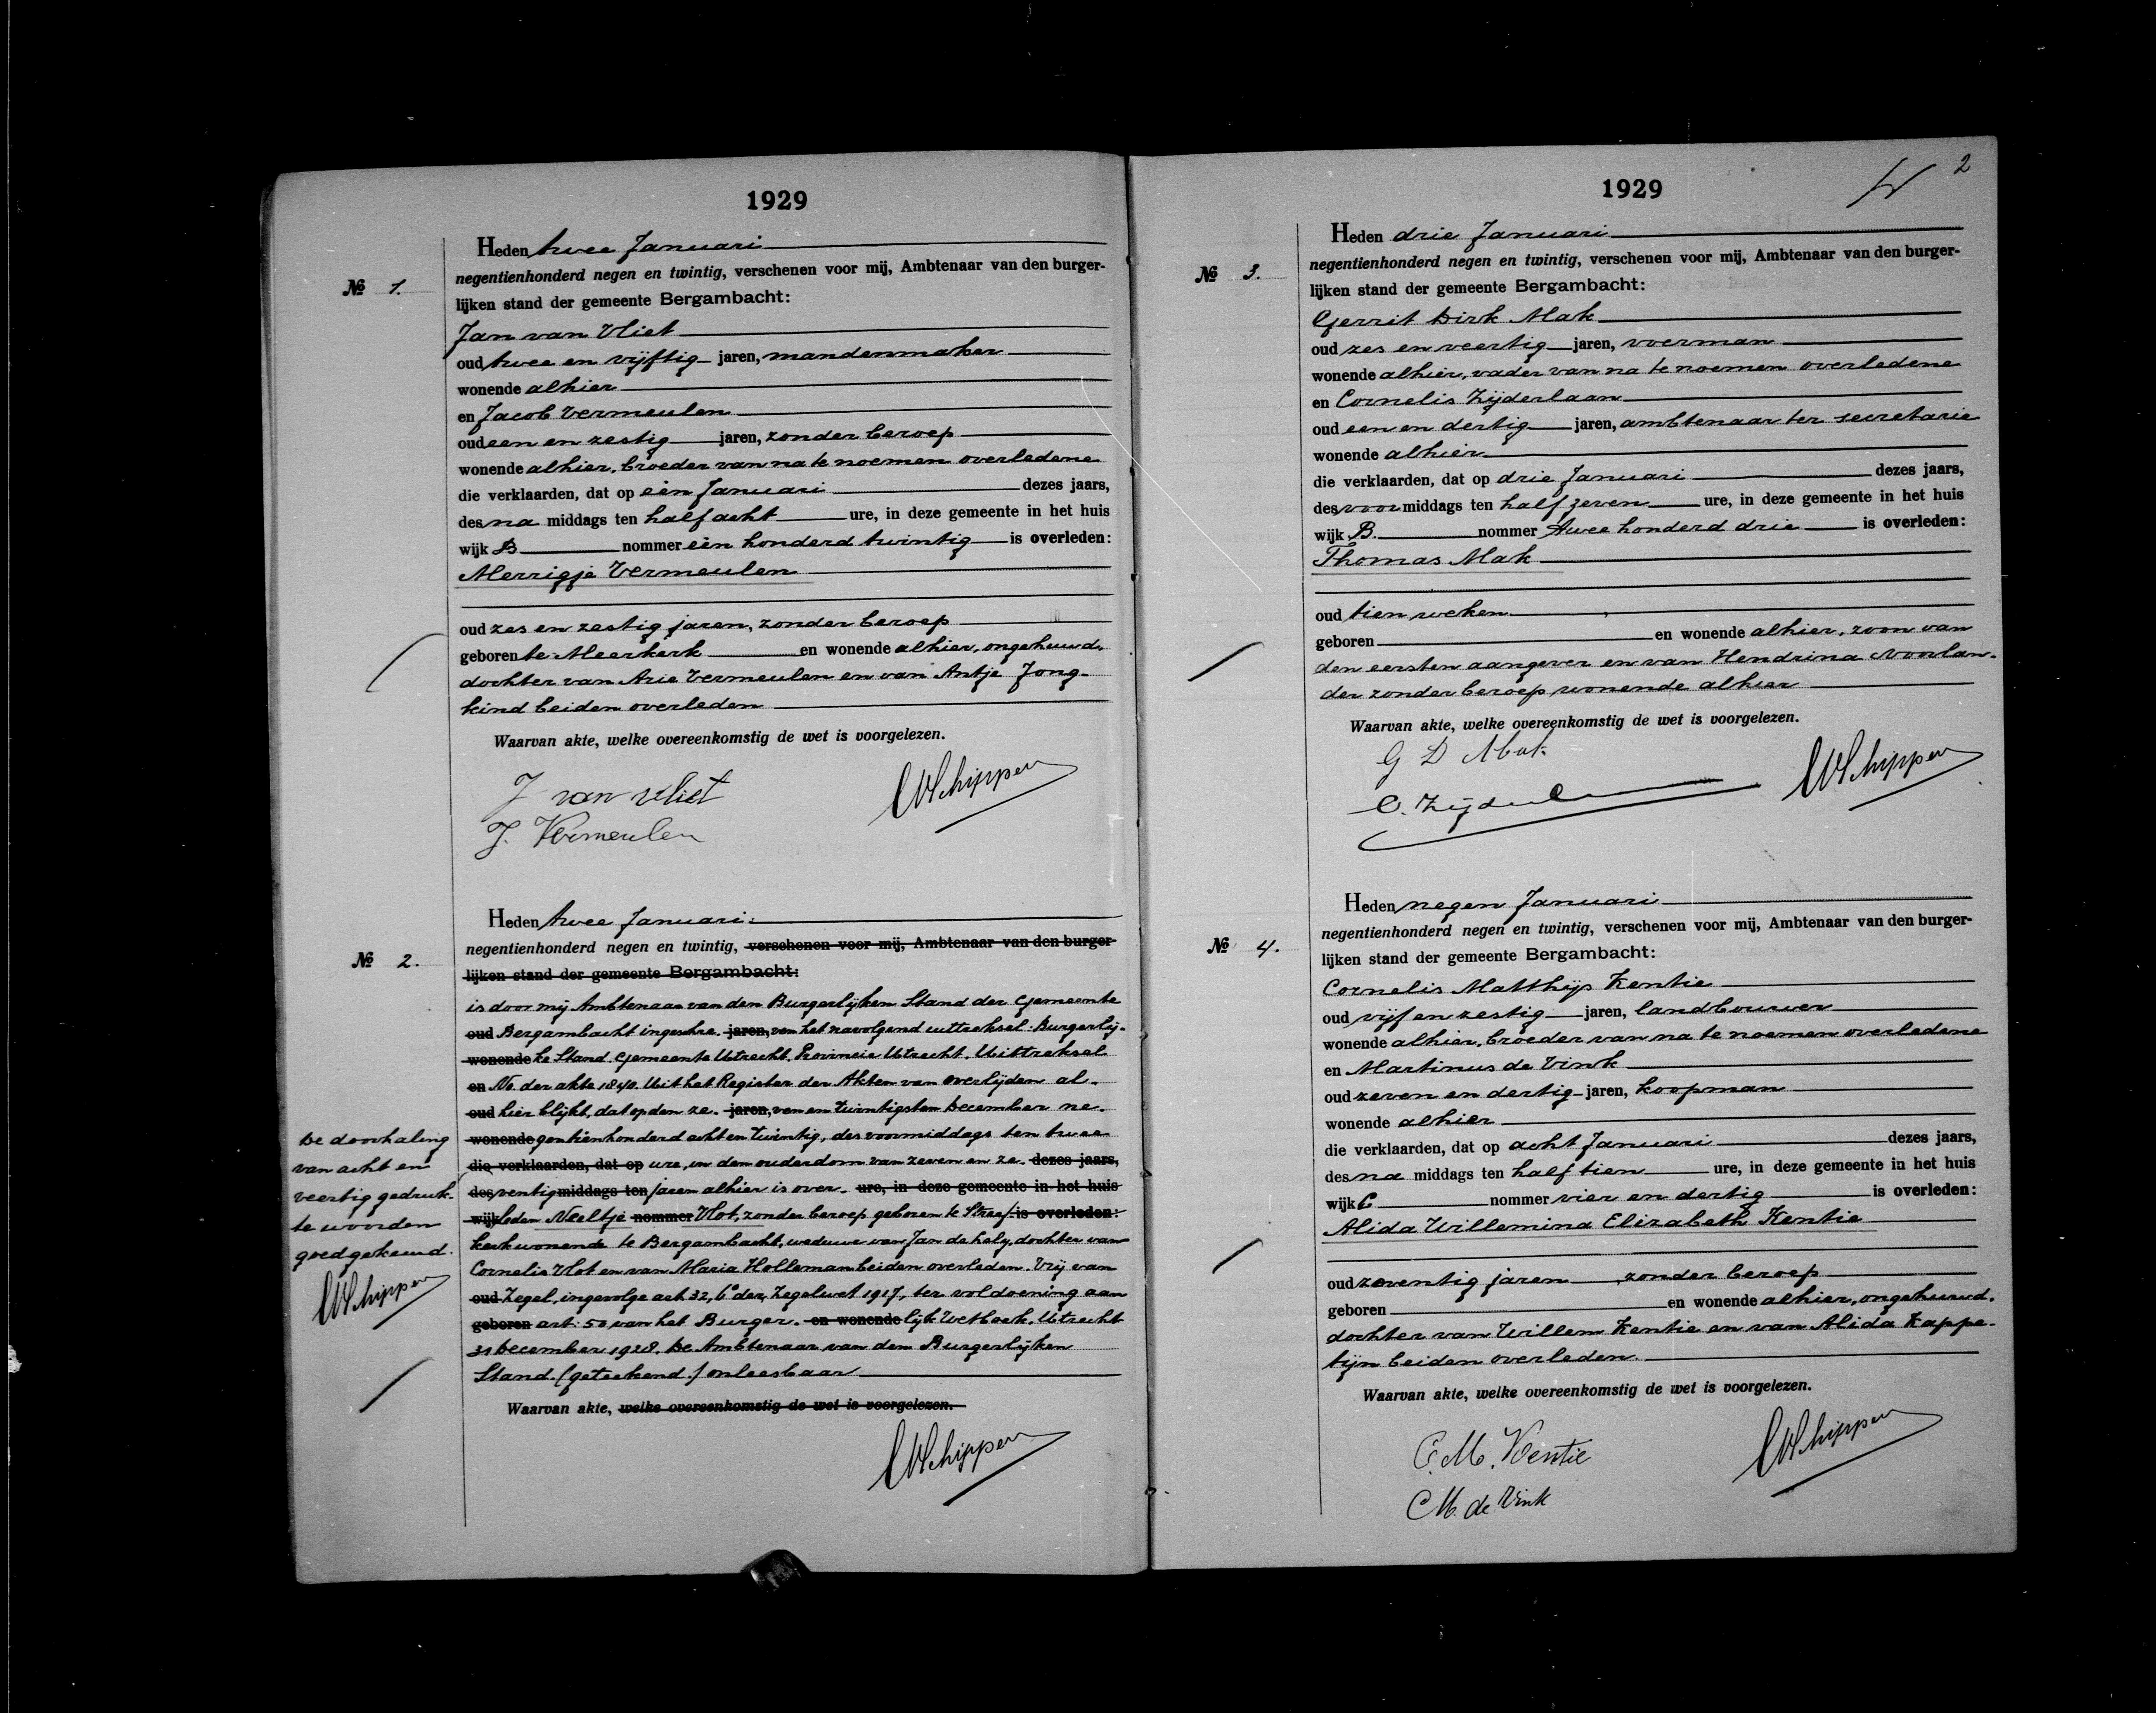 1929
Heden twee Januari
№ 1.
negentienhonderd negen en twintig, verschenen voor mij, Ambtenaar van den burger-
lijken stand der gemeente Bergambacht:
Jan van Vliet
oud twee en vijftig jaren, mandenmaker
wonende alhier
en Jacob Vermeulen
oud een en zestig jaren, zonder beroep
wonende alhier, broeder van na te noemen overledene
die verklaarden, dat op één Januari dezes jaars,
des na middags ten half acht ure, in deze gemeente in het huis
wijk B nommer één honderd twintig is overleden:
Merrigje Vermeulen
oud zes en zestig jaren, zonder beroep
geboren te Meerkerk en wonende alhier, ongehuwd,
dochter van Arie Vermeulen en van Antje Jong-
kind beiden overleden
Waarvan akte, welke overeenkomstig de wet is voorgelezen.
J van Vliet
J. Vermeulen
Heden twee Januari.
negentienhonderd negen en twintig, verschenen voor mij, Ambtenaar van den burger-
№ 2.
lijken stand der gemeente Bergambacht:
is door mij Ambtenaar van den Burgerlijken Stand der Gemeente
oud Bergambacht ingeschre- jaren, ven het navolgend uittreksel. Burgerlij-
wonende ke Stand. Gemeente Utrecht, Provincie Utrecht. Uittreksel
en No. der akte 1840. Uit het Register der Akten van overlijden al-
oud hier blijkt, dat op den ze- jaren, ven en twintigsten December ne-
wonende gentienhonderd acht en twintig, des voormiddags ten twee
die verklaarden, dat op ure, in den ouderdom van zeven en ze- dezes jaars,
des ventig middags ten jaren alhier is over- ure, in deze gemeente in het huis
wijk leden Neeltje nommer Vlot, zonder beroep geboren te Streef- is overleden:
kerk wonende te Bergambacht, weduwe van Jan de hely, dochter van
Cornelis Vlot en van Maria Holleman beiden overleden. Vrij van
oud Zegel, ingevolge art 32, 6° der Zegelwet 1917, ter voldoening aan
geboren art: 50 van het Burger- en wonende lijk Wetboek. Utrecht
31 December 1928. De Ambtenaar van den Burgerlijken
Stand. (geteekend.) onleesbaar
Waarvan akte, welke overeenkomstig de wet is voorgelezen.
De doorhaling
van acht en
veertig gedruk-
te woorden
goedgekeurd.
2
1929
Heden drie Januari
№ 3.
negentienhonderd negen en twintig, verschenen voor mij, Ambtenaar van den burger-
lijken stand der gemeente Bergambacht:
Gerrit Dirk Mak
oud zes en veertig jaren, voerman
wonende alhier, vader van na te noemen overledene
en Cornelis Zijderlaan
oud een en dertig jaren, ambtenaar ter secretarie
wonende alhier
die verklaarden, dat op drie Januari dezes jaars,
des voor middags ten half zeven ure, in deze gemeente in het huis
wijk B. nommer twee honderd drie is overleden:
Thomas Mak
oud tien weken
geboren en wonende alhier, zoon van
den eersten aangever en van Hendrina Noorlan-
der zonder beroep wonende alhier
Waarvan akte, welke overeenkomstig de wet is voorgelezen.
G D Mak.
Heden negen Januari
negentienhonderd negen en twintig, verschenen voor mij, Ambtenaar van den burger-
№ 4.
lijken stand der gemeente Bergambacht:
Cornelis Matthijs Kentie
oud vijf en zestig jaren, landbouwer
wonende alhier, broeder van na te noemen overledene
en Martinus de Vink
oud zeven en dertig jaren, koopman
wonende alhier
die verklaarden, dat op acht Januari dezes jaars,
des na middags ten half tien ure, in deze gemeente in het huis
wijk C nommer vier en dertig is overleden:
Alida Willemina Elizabeth Kentie
oud zeventig jaren zonder beroep
geboren en wonende alhier, ongehuwd,
dochter van Willem Kentie en van Alida Kappe-
tijn beiden overleden.
Waarvan akte, welke overeenkomstig de wet is voorgelezen.
C. M. Kentie
M. de Vink